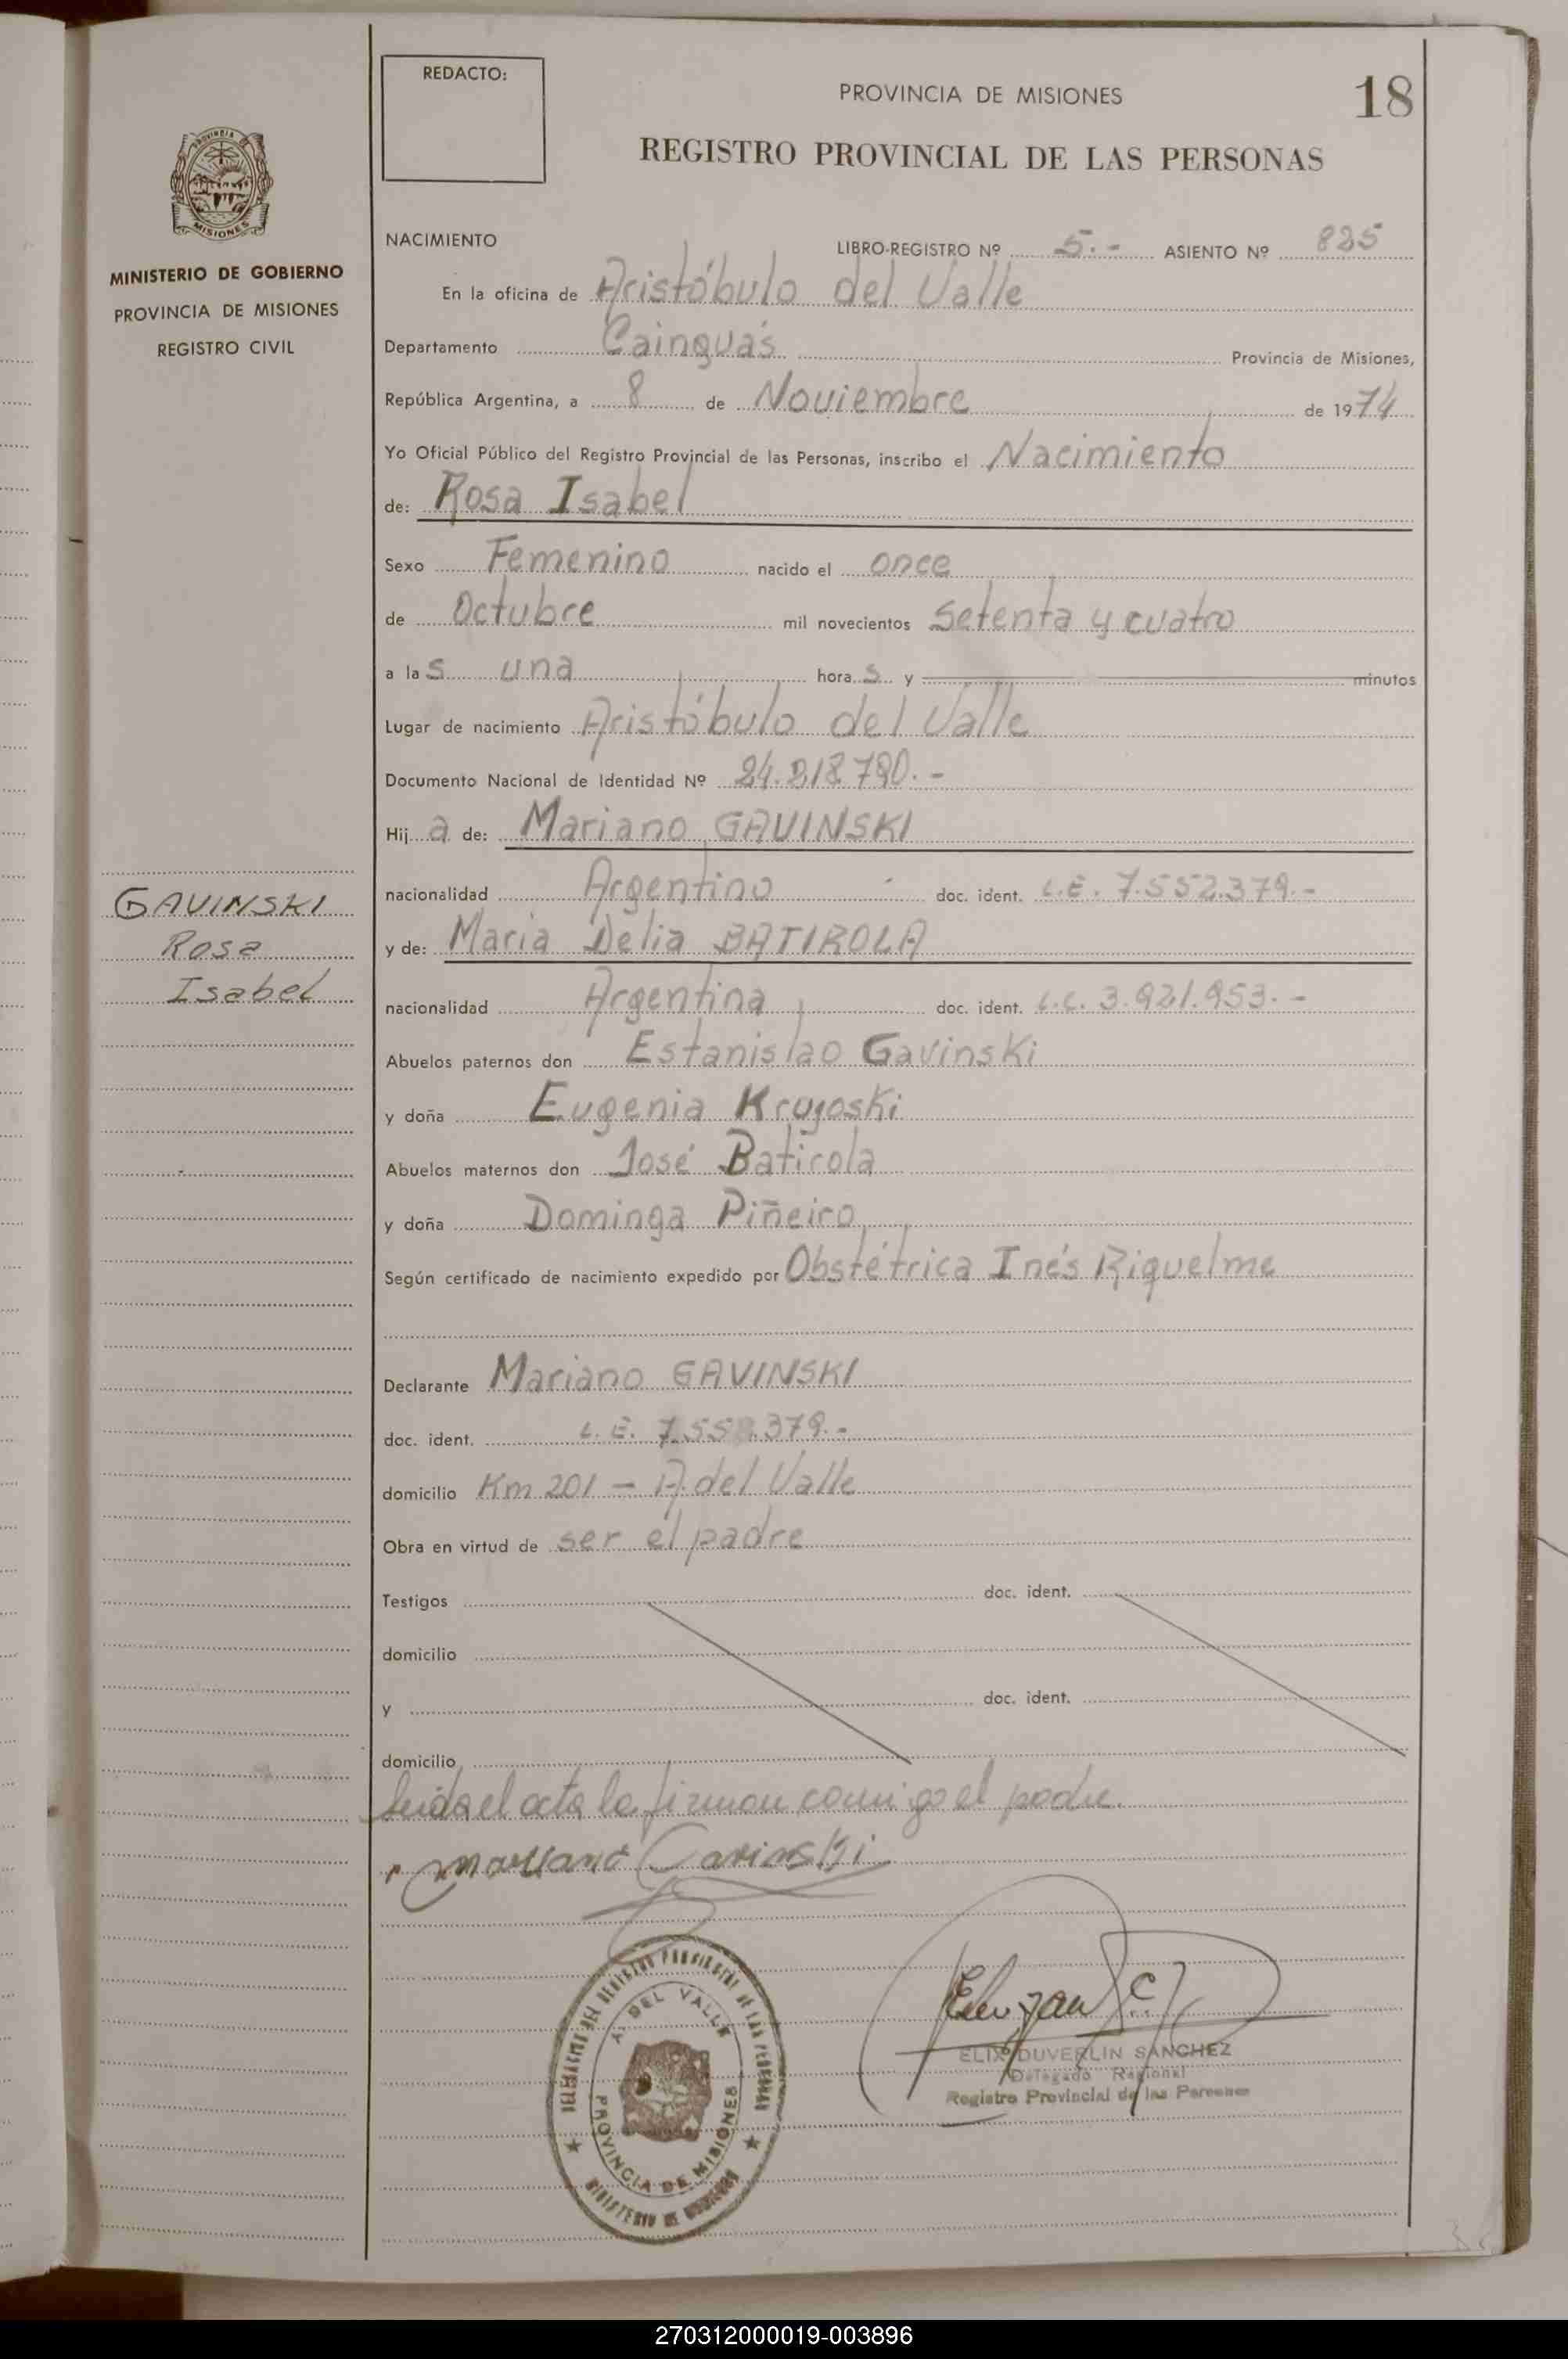 REDACTO:
PROVINCIA DE MISIONES
18
REGISTRO PROVINCIAL DE LAS PERSONAS
PROVINCIA
MISIONES
MINISTERIO DE GOBIERNO
PROVINCIA DE MISIONES
REGISTRO CIVIL
NACIMIENTO LIBRO-REGISTRO Nº 5.- ASIENTO Nº 825
En la oficina de Aristóbulo del Valle
Departamento Cainguás Provincia de Misiones,
República Argentina, a 8 de Noviembre de 1974
Yo Oficial Público del Registro Provincial de las Personas, inscribo el Nacimiento
de: Rosa Isabel
Sexo Femenino nacido el once
de Octubre mil novecientos setenta y cuatro
a las una horas y minutos
Lugar de nacimiento Aristóbulo del Valle
Documento Nacional de Identidad Nº 24.218.780.-
Hija de: Mariano GAVINSKI
nacionalidad Argentino doc. ident. L.E. 7.552.379.-
y de: Maria Delia BATIROLA
nacionalidad Argentina doc. ident. L.C. 3.921.953.-
GAVINSKI
Rosa
Isabel
Abuelos paternos don Estanislao Gavinski
y doña Eugenia Krujoski
Abuelos maternos don José Batirola
y doña Dominga Piñeiro
Según certificado de nacimiento expedido por Obstétrica Inés Riquelme
Declarante Mariano GAVINSKI
doc. ident. L.E. 7.552.379.-
domicilio Km 201 - A. del Valle
Obra en virtud de ser el padre
Testigos doc. ident.
domicilio
y doc. ident.
domicilio
Leida el acta la firman conmigo el padre.
Mariano Gavinski
A. DEL VALLE
PROVINCIA DE MISIONES
MINISTERIO DE GOBIERNO
ELIX DUVERLIN SANCHEZ
Delegado Regional
Registro Provincial de las Personas
270312000019-003896